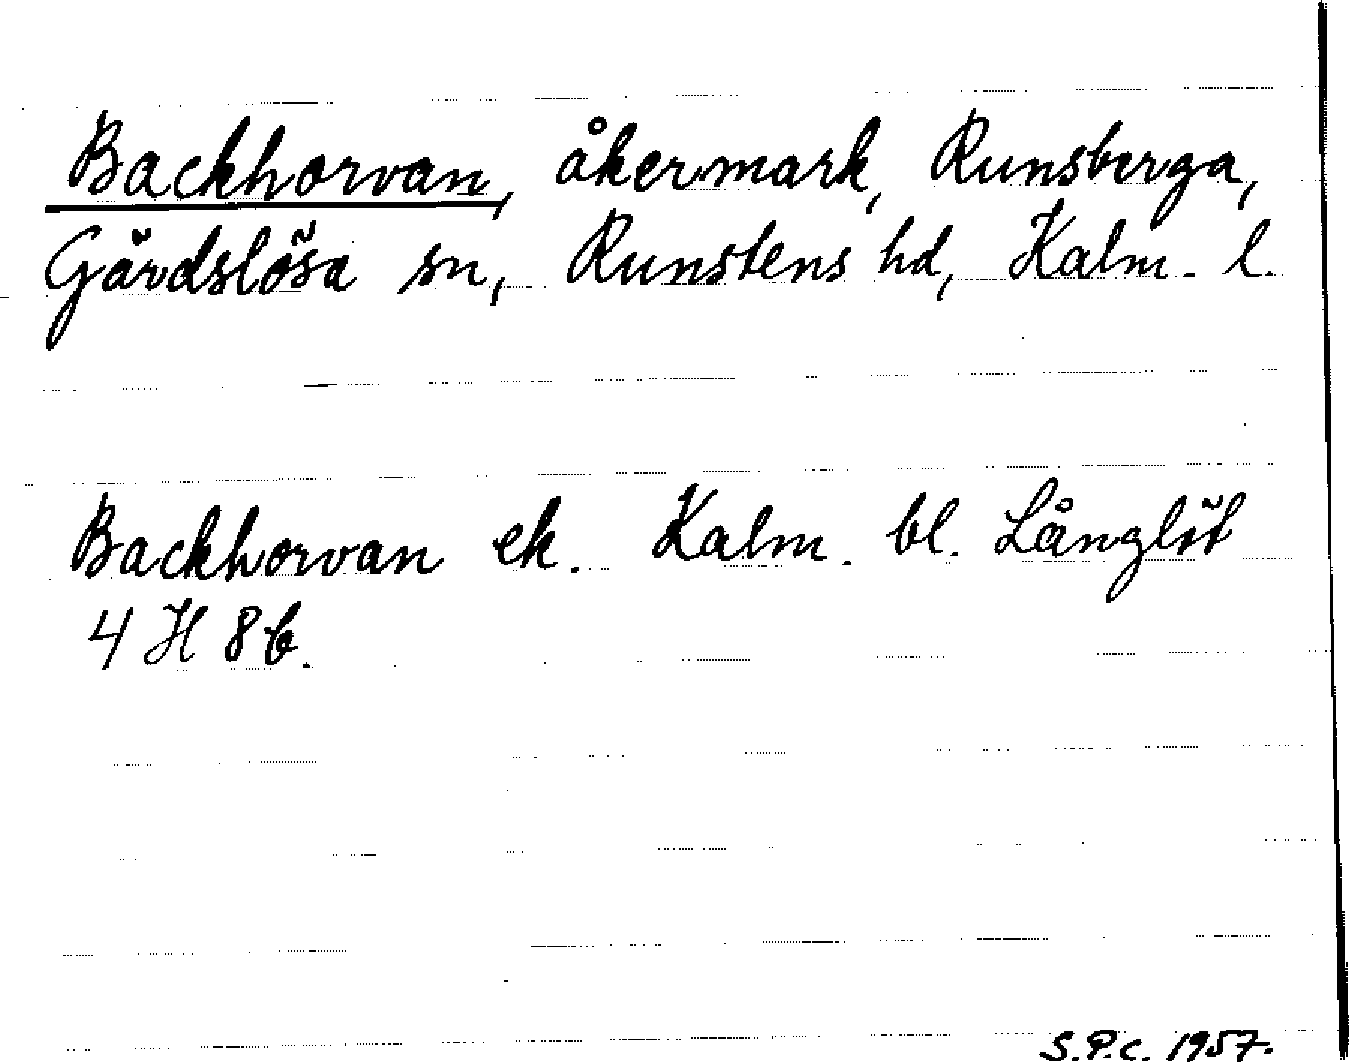 Backhorvan, åkermark, Runsberga,
Gärdslösa sn, Runstens hd, Kalm. l.
Backhorvan ek. Kalm. bl. Långlöt
4 H 8 b.
S.P.C. 1957.